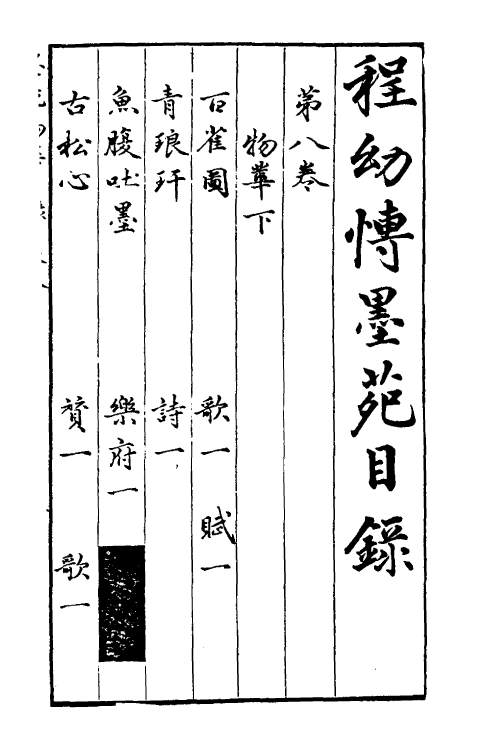 程幼博墨苑目錄
第八卷
物華下
百雀圖 歌一 賦一
青琅玕 詩一
魚腹吐墨 樂府一
古松心 贊一 歌一